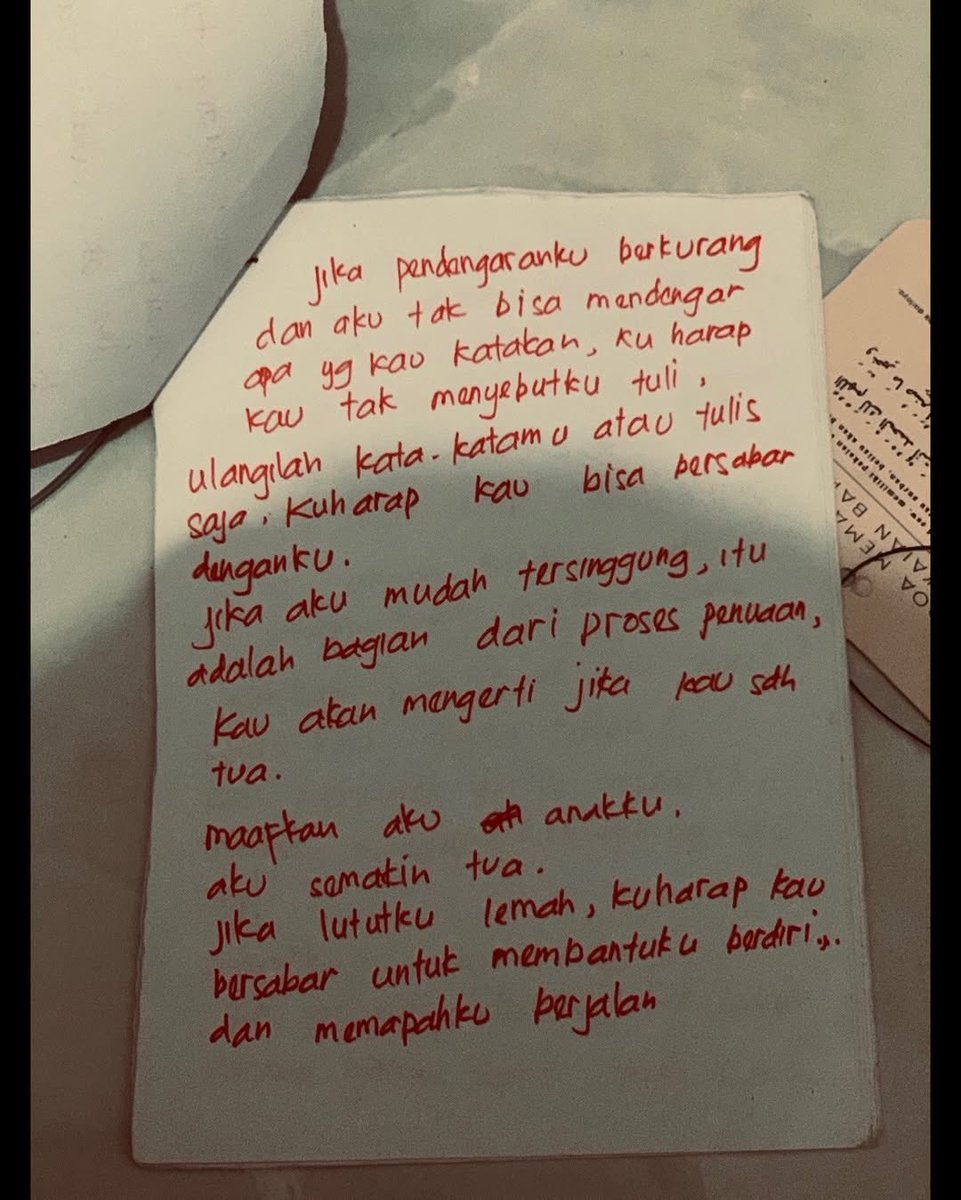 Jika pendengaranku berkurang
dan aku tak bisa mendengar
apa yg kau katakan, ku harap
kau tak menyebutku tuli,
ulangilah kata-katamu atau tulis
saja, kuharap kau bisa bersabar
denganku.
Jika aku mudah tersinggung, itu
adalah bagian dari proses penuaan,
kau akan mengerti jika kau sdh
tua.
maafkan aku anakku,
aku semakin tua.
Jika lututku lemah, kuharap kau
bersabar untuk membantuku berdiri,..
dan memapahku berjalan